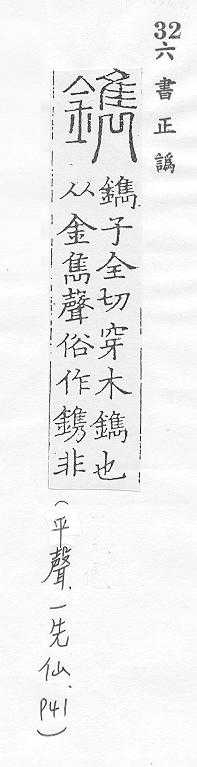 32
六書正譌
鐫
鐫子全切穿木鐫也
从金雋聲俗作鎸非
(平聲、一先仙、P41)